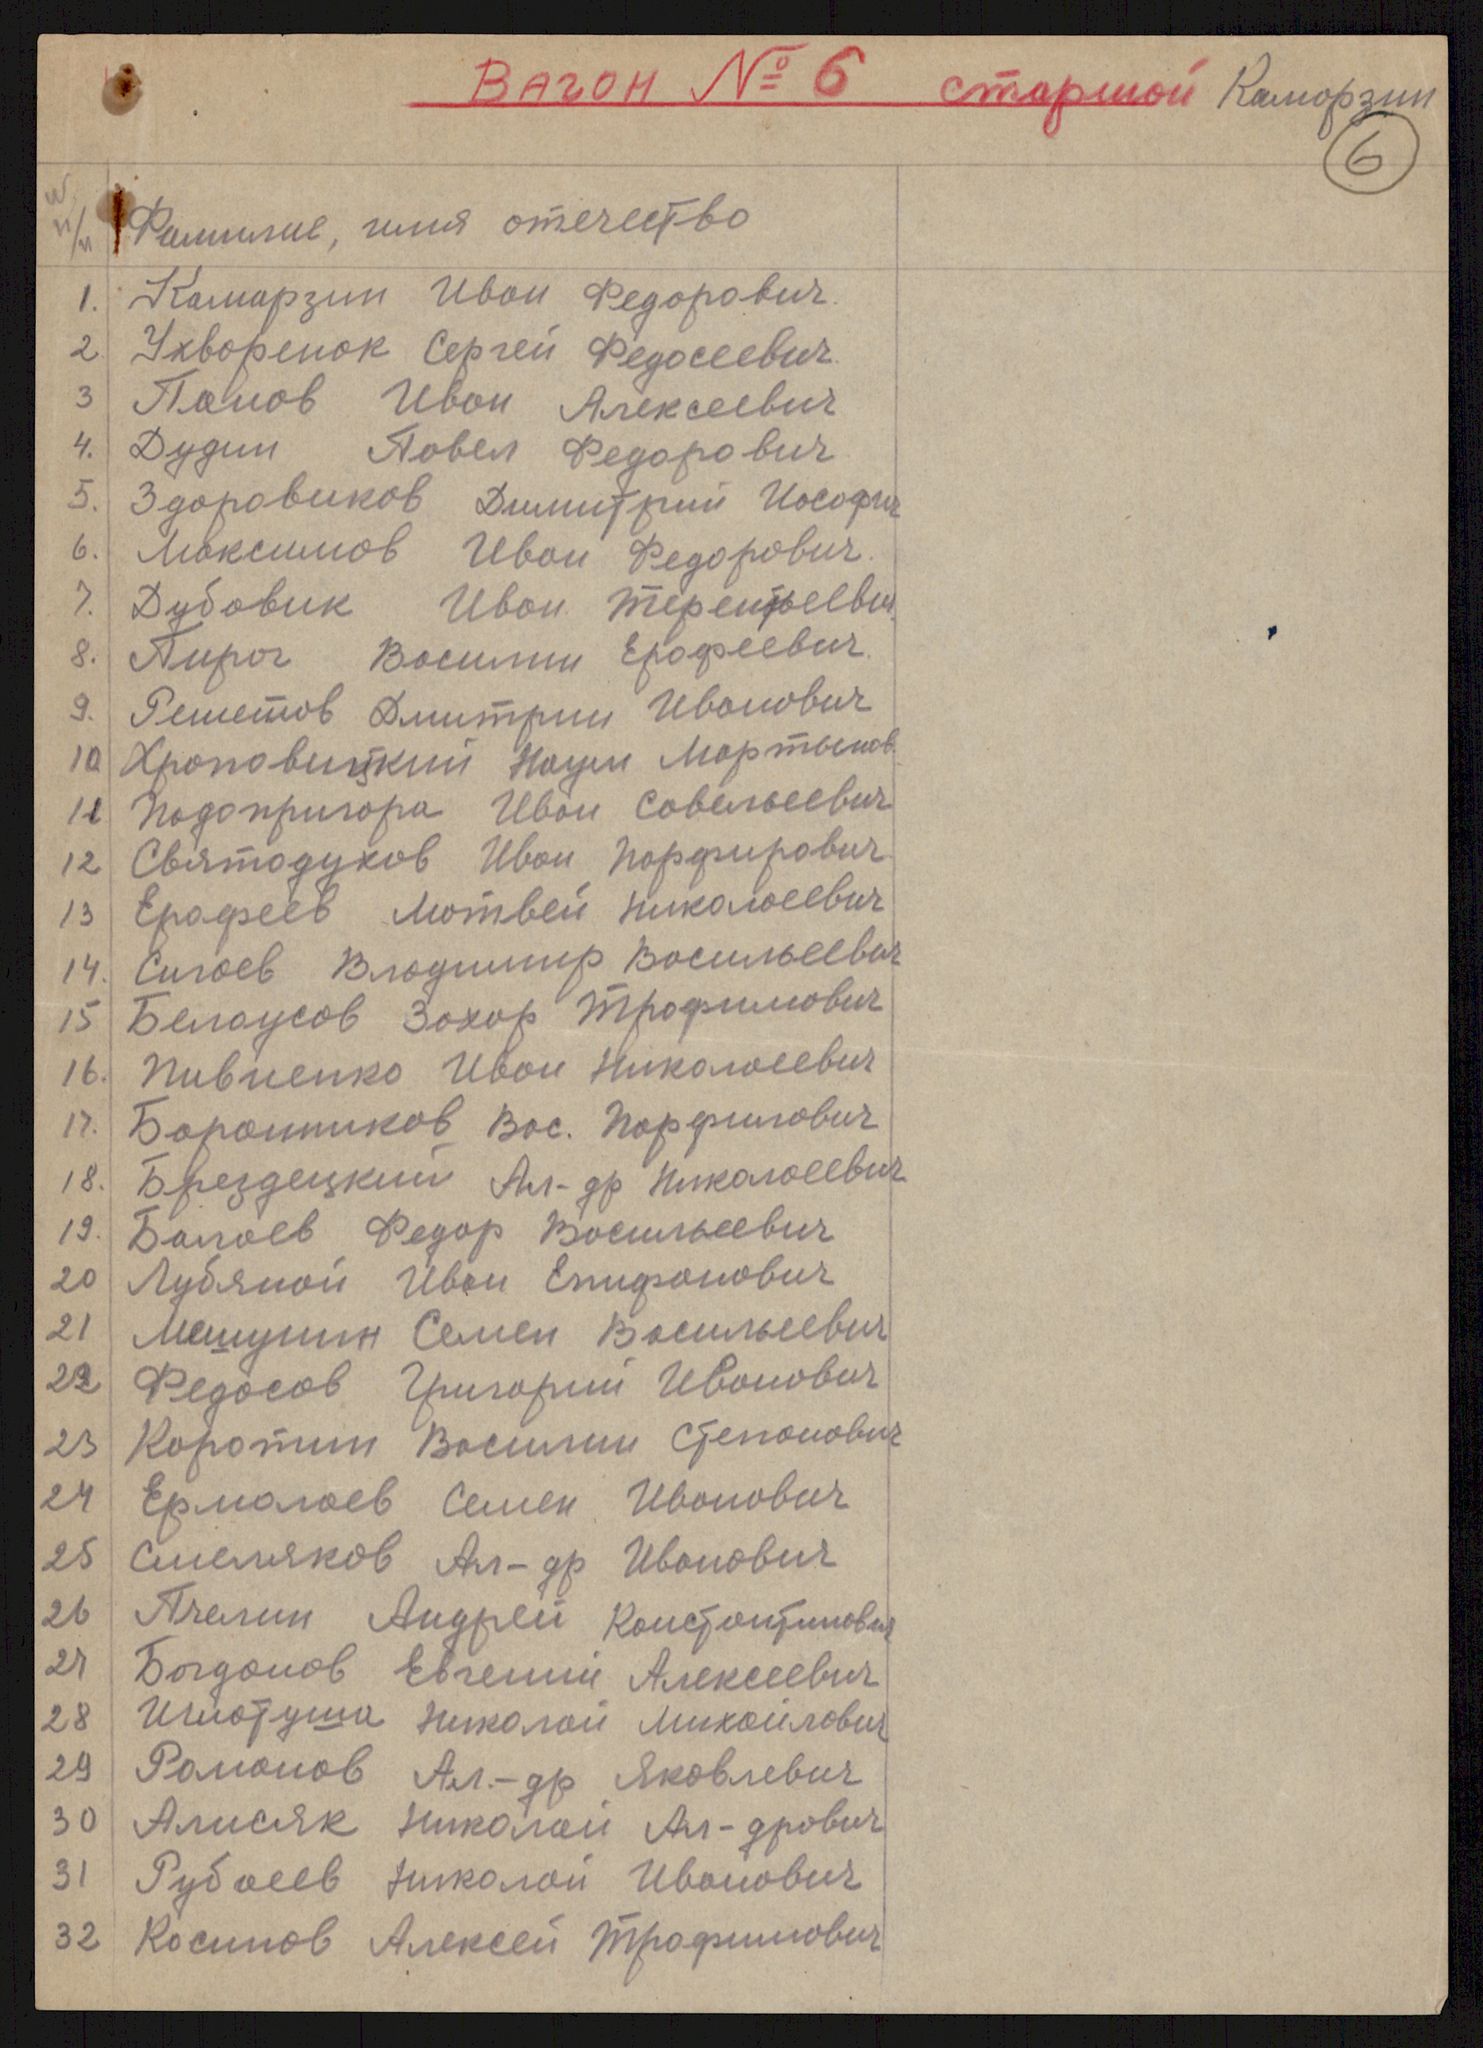 Вагон № 6 старшой Каморзин
6
№ п/п Фамилие, имя отечество
1. Камарзин Иван Федорович.
2 Ухваренок Сергей Федосеевич.
3 Панов Иван Алексеевич
4. Дудин Павел Федорович
5. Здоровиков Димитрий Иософич
6. Максимов Иван Федорович.
7. Дубовик Иван Терентьевич.
8. Пирог Василии Ерофеевич.
9. Решетов Дмитрии Иванович
10 Храповицкий Наум Мартынов.
11 Подопригора Иван Савельеевич
12 Святодухов Иван Порфирович
13 Ерофеев Матвей Николаеевич
14. Сигаев Владимир Васильеевич
15 Белоусов Захар Трофимович
16. Пивненко Иван Николаеевич
17. Баранников Вас. Порфилович
18. Брездецкий Ал-др Николаеевич
19. Балаев Федор Васильеевич
20 Лубяной Иван Епифанович
21 Мешунин Семен Васильеевич
22 Федосов Григорий Иванович
23 Каротин Василии Степанович
24 Ермолаев Семен Иванович
25 Смеляков Ал-др Иванович
26 Пчелин Андрей Константинович
27 Богданов Евгений Алексеевич
28 Игнатуша Николай Михайлович
29 Романов Ал.-др Яковлевич
30 Алисяк Николай Ал-дрович
31 Рубаеев Николай Иванович
32 Косинов Алексей Трофимович